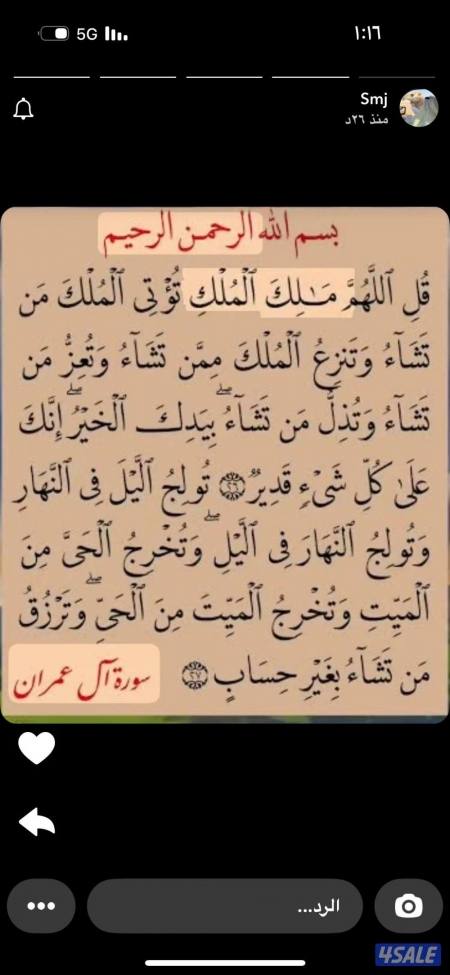 5G
١:١٦
Smj
منذ ٢٦د
بسم الله الرحمن الرحيم
قُلِ ٱللَّهُمَّ مَـٰلِكَ ٱلْمُلْكِ تُؤْتِى ٱلْمُلْكَ مَن
تَشَآءُ وَتَنزِعُ ٱلْمُلْكَ مِمَّن تَشَآءُ وَتُعِزُّ مَن
تَشَآءُ وَتُذِلُّ مَن تَشَآءُ ۖ بِيَدِكَ ٱلْخَيْرُ ۖ إِنَّكَ
عَلَىٰ كُلِّ شَىْءٍ قَدِيرٌ ۝٢٦ تُولِجُ ٱلَّيْلَ فِى ٱلنَّهَارِ
وَتُولِجُ ٱلنَّهَارَ فِى ٱلَّيْلِ ۖ وَتُخْرِجُ ٱلْحَىَّ مِنَ
ٱلْمَيِّتِ وَتُخْرِجُ ٱلْمَيِّتَ مِنَ ٱلْحَىِّ ۖ وَتَرْزُقُ
مَن تَشَآءُ بِغَيْرِ حِسَابٍ ۝٢٧
سورة آل عمران
الرد...
4SALE